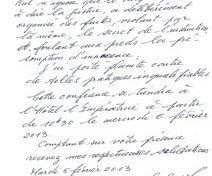 Nul n'ignore que le
a délibérément
organisé des fuites violant par
là même, le secret de l'instruction
et foulant aux pieds la pré
somption d'innocence.
Je porte plainte contre
de telles pratiques inqualifiables
Cette conférence se tiendra à
l'Hôtel l'Impérature à partir
de 10h30 le mercredi 6 février
2013.
Comptant sur votre présence
recevez mes respectueuses salutations
Mardi 5 février 2013